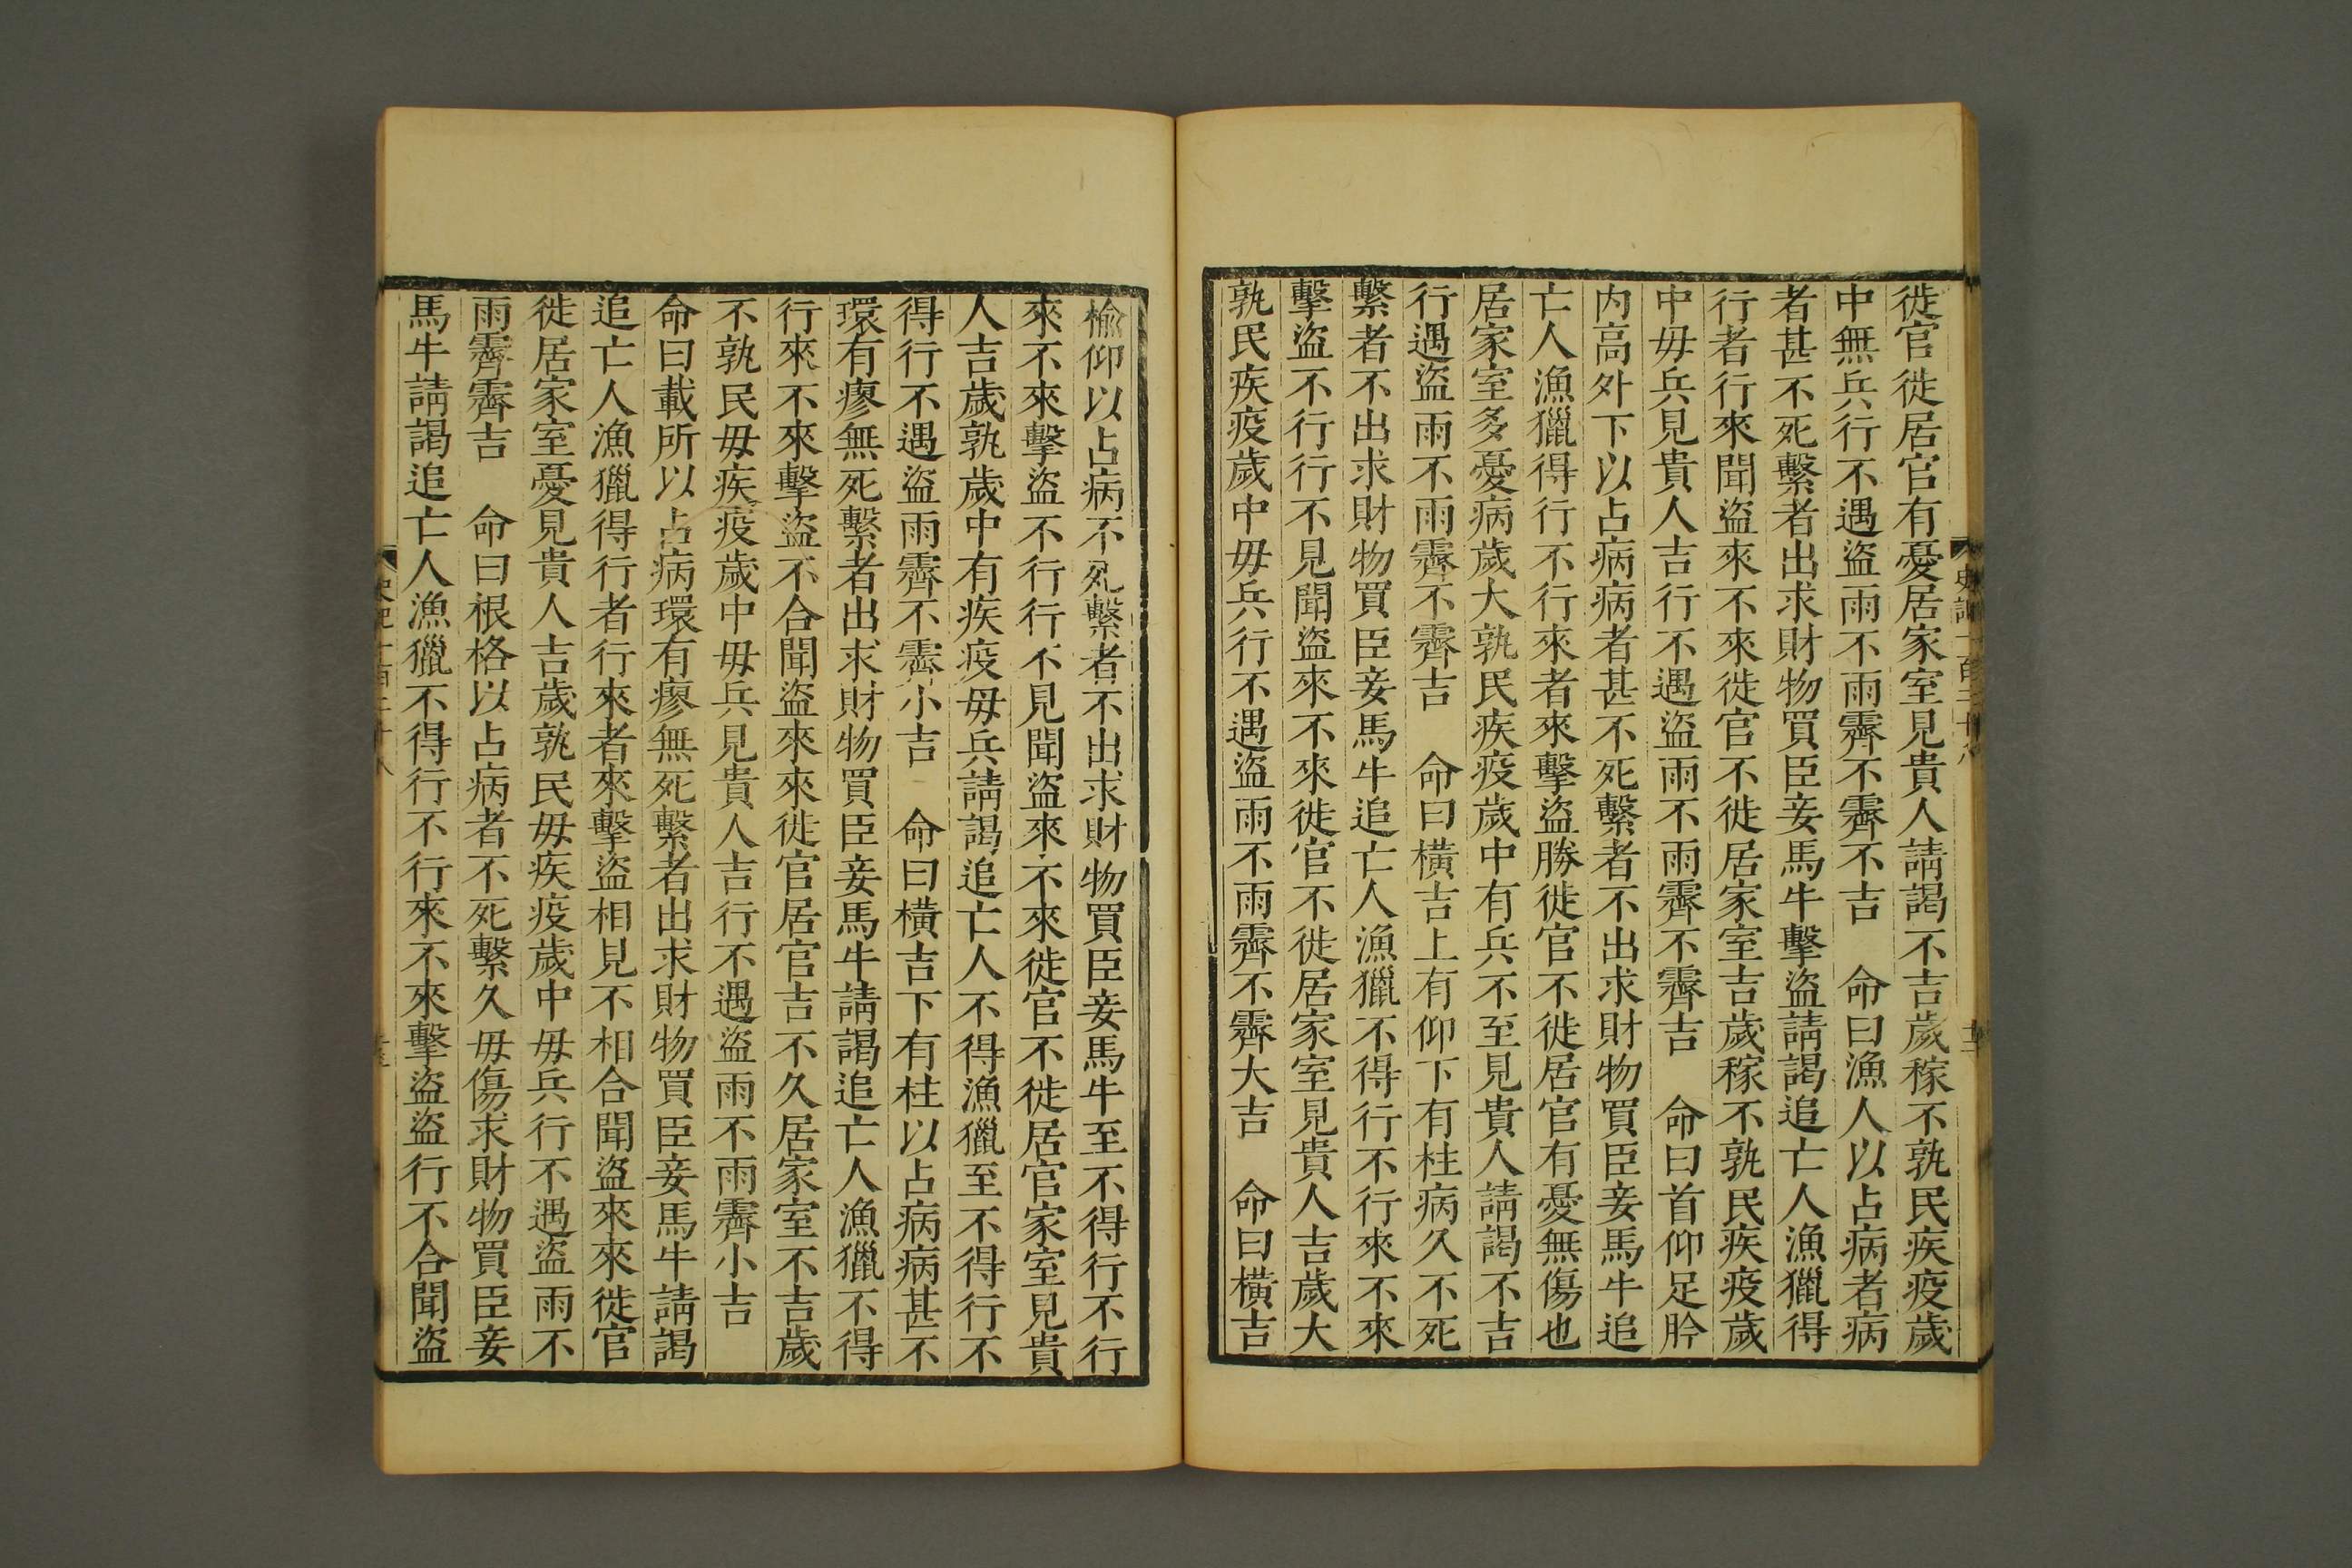 徙官徙居官有憂居家室見貴人請謁不吉歲稼不孰民疾疫歲
中無兵行不遇盜雨不雨霽不霽不吉　命曰漁人以占病者病
者甚不死繫者出求財物買臣妾馬牛擊盜請謁追亡人漁獵得
行者行來聞盜來不來徙官不徙居家室吉歲稼不孰民疾疫歲
中毋兵見貴人吉行不遇盜雨不雨霽不霽吉　命曰首仰足肣
内高外下以占病病者甚不死繫者不出求財物買臣妾馬牛追
亡人漁獵得行不行來者來擊盜勝徙官不徙居官有憂無傷也
居家室多憂病歲大孰民疾疫歲中有兵不至見貴人請謁不吉
行遇盜雨不雨霽不霽吉　命曰橫吉上有仰下有柱病久不死
繫者不出求財物買臣妾馬牛追亡人漁獵不得行不行來不來
擊盜不行行不見聞盜來不來徙官不徙居家室見貴人吉歲大
孰民疾疫歲中毋兵行不遇盜雨不雨霽不霽大吉　命曰橫吉
榆仰以占病不死繫者不出求財物買臣妾馬牛至不得行不行
來不來擊盜不行行不見聞盜來不來徙官不徙居官家室見貴
人吉歲孰歲中有疾疫毋兵請謁追亡人不得漁獵至不得行不
得行不遇盜雨霽不霽小吉　命曰橫吉下有柱以占病病甚不
環有瘳無死繫者出求財物買臣妾馬牛請謁追亡人漁獵不得
行來不來擊盜不合聞盜來來徙官居官吉不久居家室不吉歲
不孰民毋疾疫歲中毋兵見貴人吉行不遇盜雨不雨霽小吉
命曰載所以占病環有瘳無死繫者出求財物買臣妾馬牛請謁
追亡人漁獵得行者行來者來擊盜相見不相合聞盜來來徙官
徙居家室憂見貴人吉歲孰民毋疾疫歲中毋兵行不遇盜雨不
雨霽霽吉　命曰根格以占病者不死繫久毋傷求財物買臣妾
馬牛請謁追亡人漁獵不得行不行來不來擊盜盜行不合聞盜